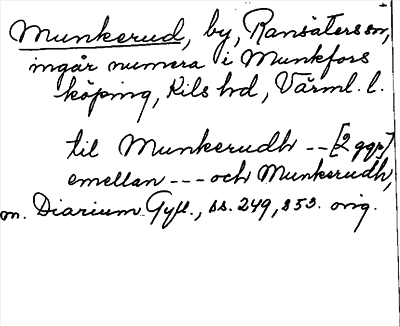 Munkerud, by, Ransäters sn,
ingår numera i Munkfors
köping, Kils hd, Värml. l.
til Munkerudh -- [2 ggr]
emellan --- och Munkerudh,
m. Diarium Gyll., ss. 249, 253. orig.